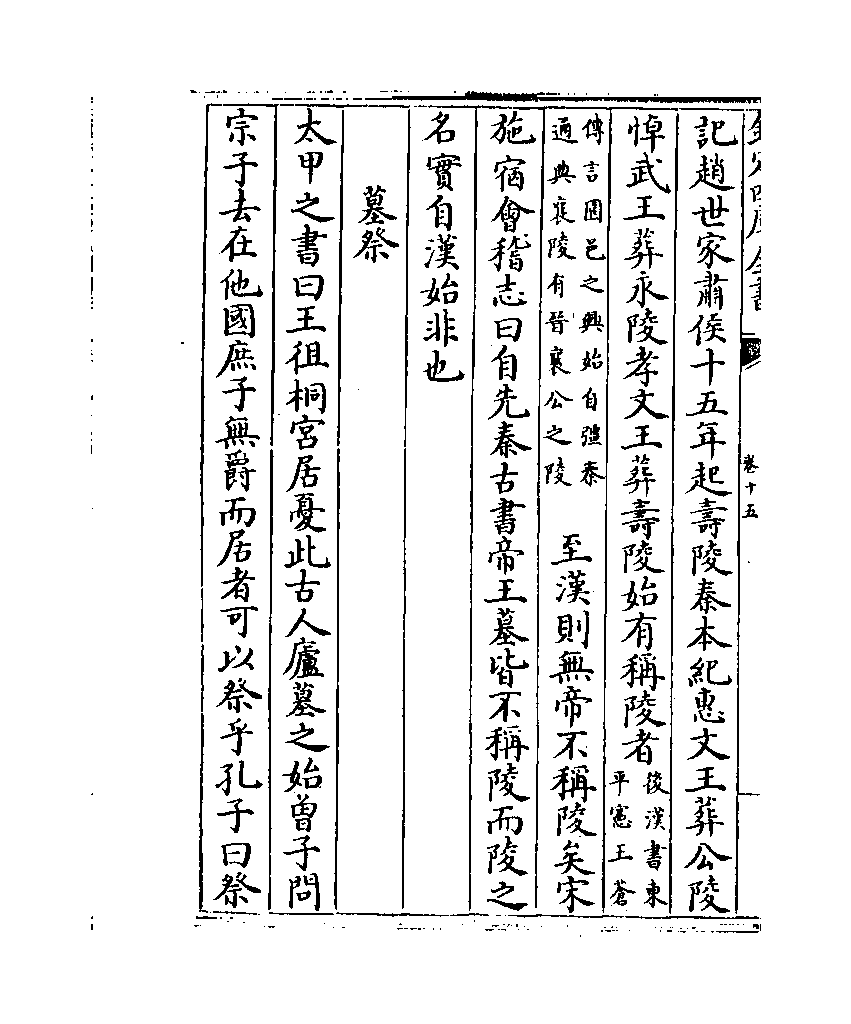 欽定四庫全書
卷十五
記趙世家肅侯十五年起壽陵秦本紀惠文王葬公陵
悼武王葬永陵孝文王葬壽陵始有稱陵者後漢書東平憲王蒼
傳言園邑之興始自彊秦通典襄陵有晉襄公之陵 至漢則無帝不稱陵矣宋
施宿會稽志曰自先秦古書帝王墓皆不稱陵而陵之
名實自漢始非也
墓祭
太甲之書曰王徂桐宮居憂此古人廬墓之始曾子問
宗子去在他國庶子無爵而居者可以祭乎孔子曰祭